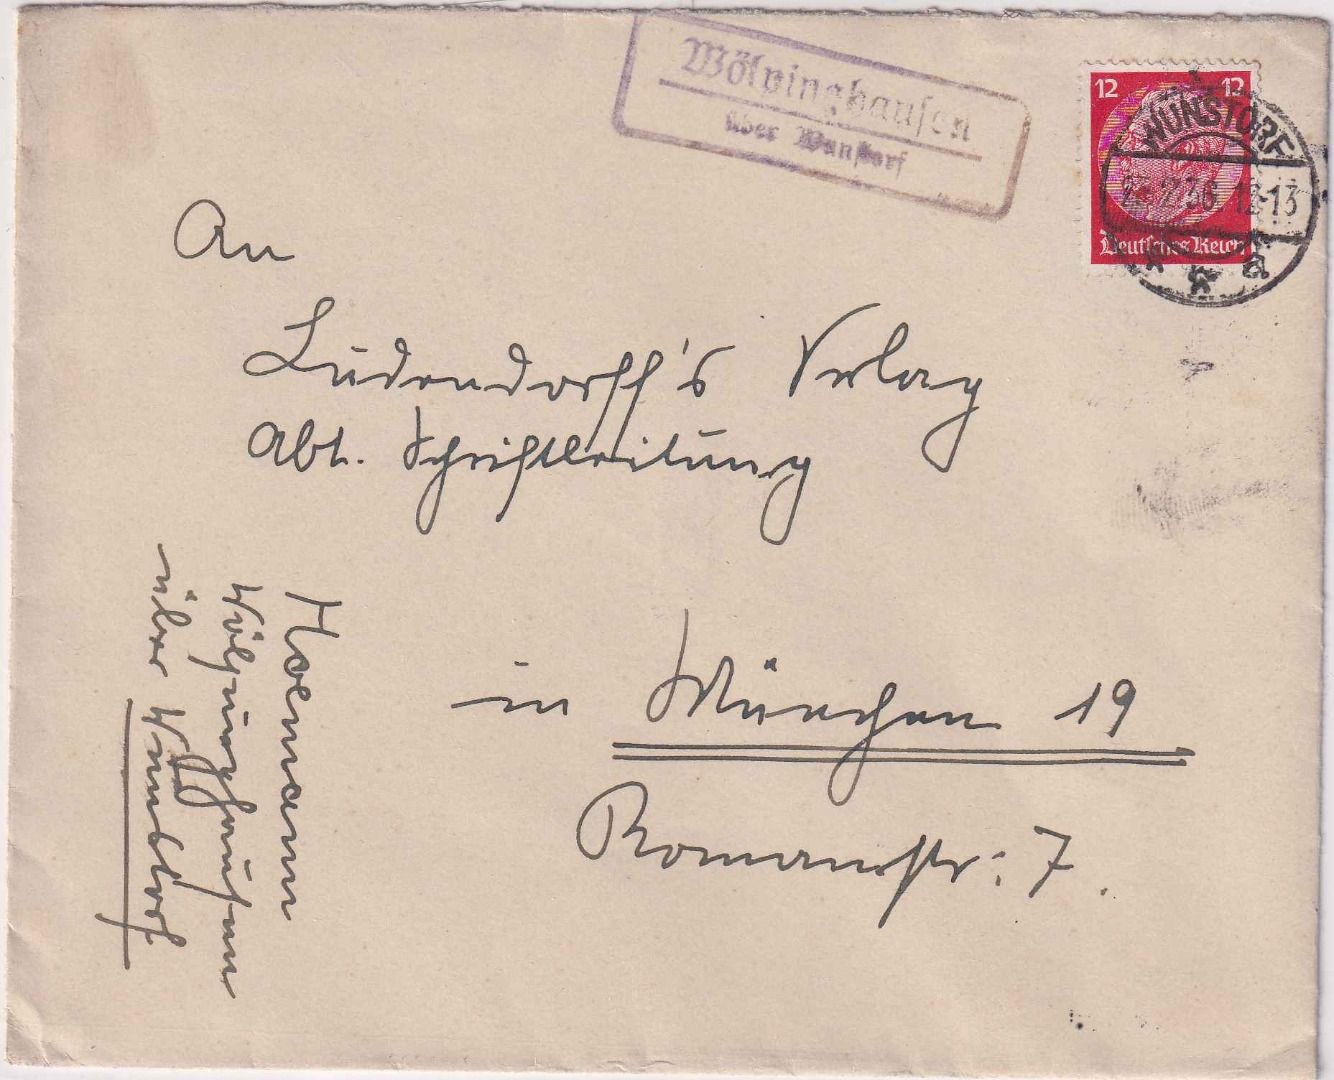 Wölpinghausen
über Wunstorf
12 12
Deutsches Reich
WUNSTORF
36 12-13
a
An
Ludendorff's Verlag
Abt. Schriftleitung
in München 19
Romanstr: 7.
Wölpinghausen
über Wunstorf